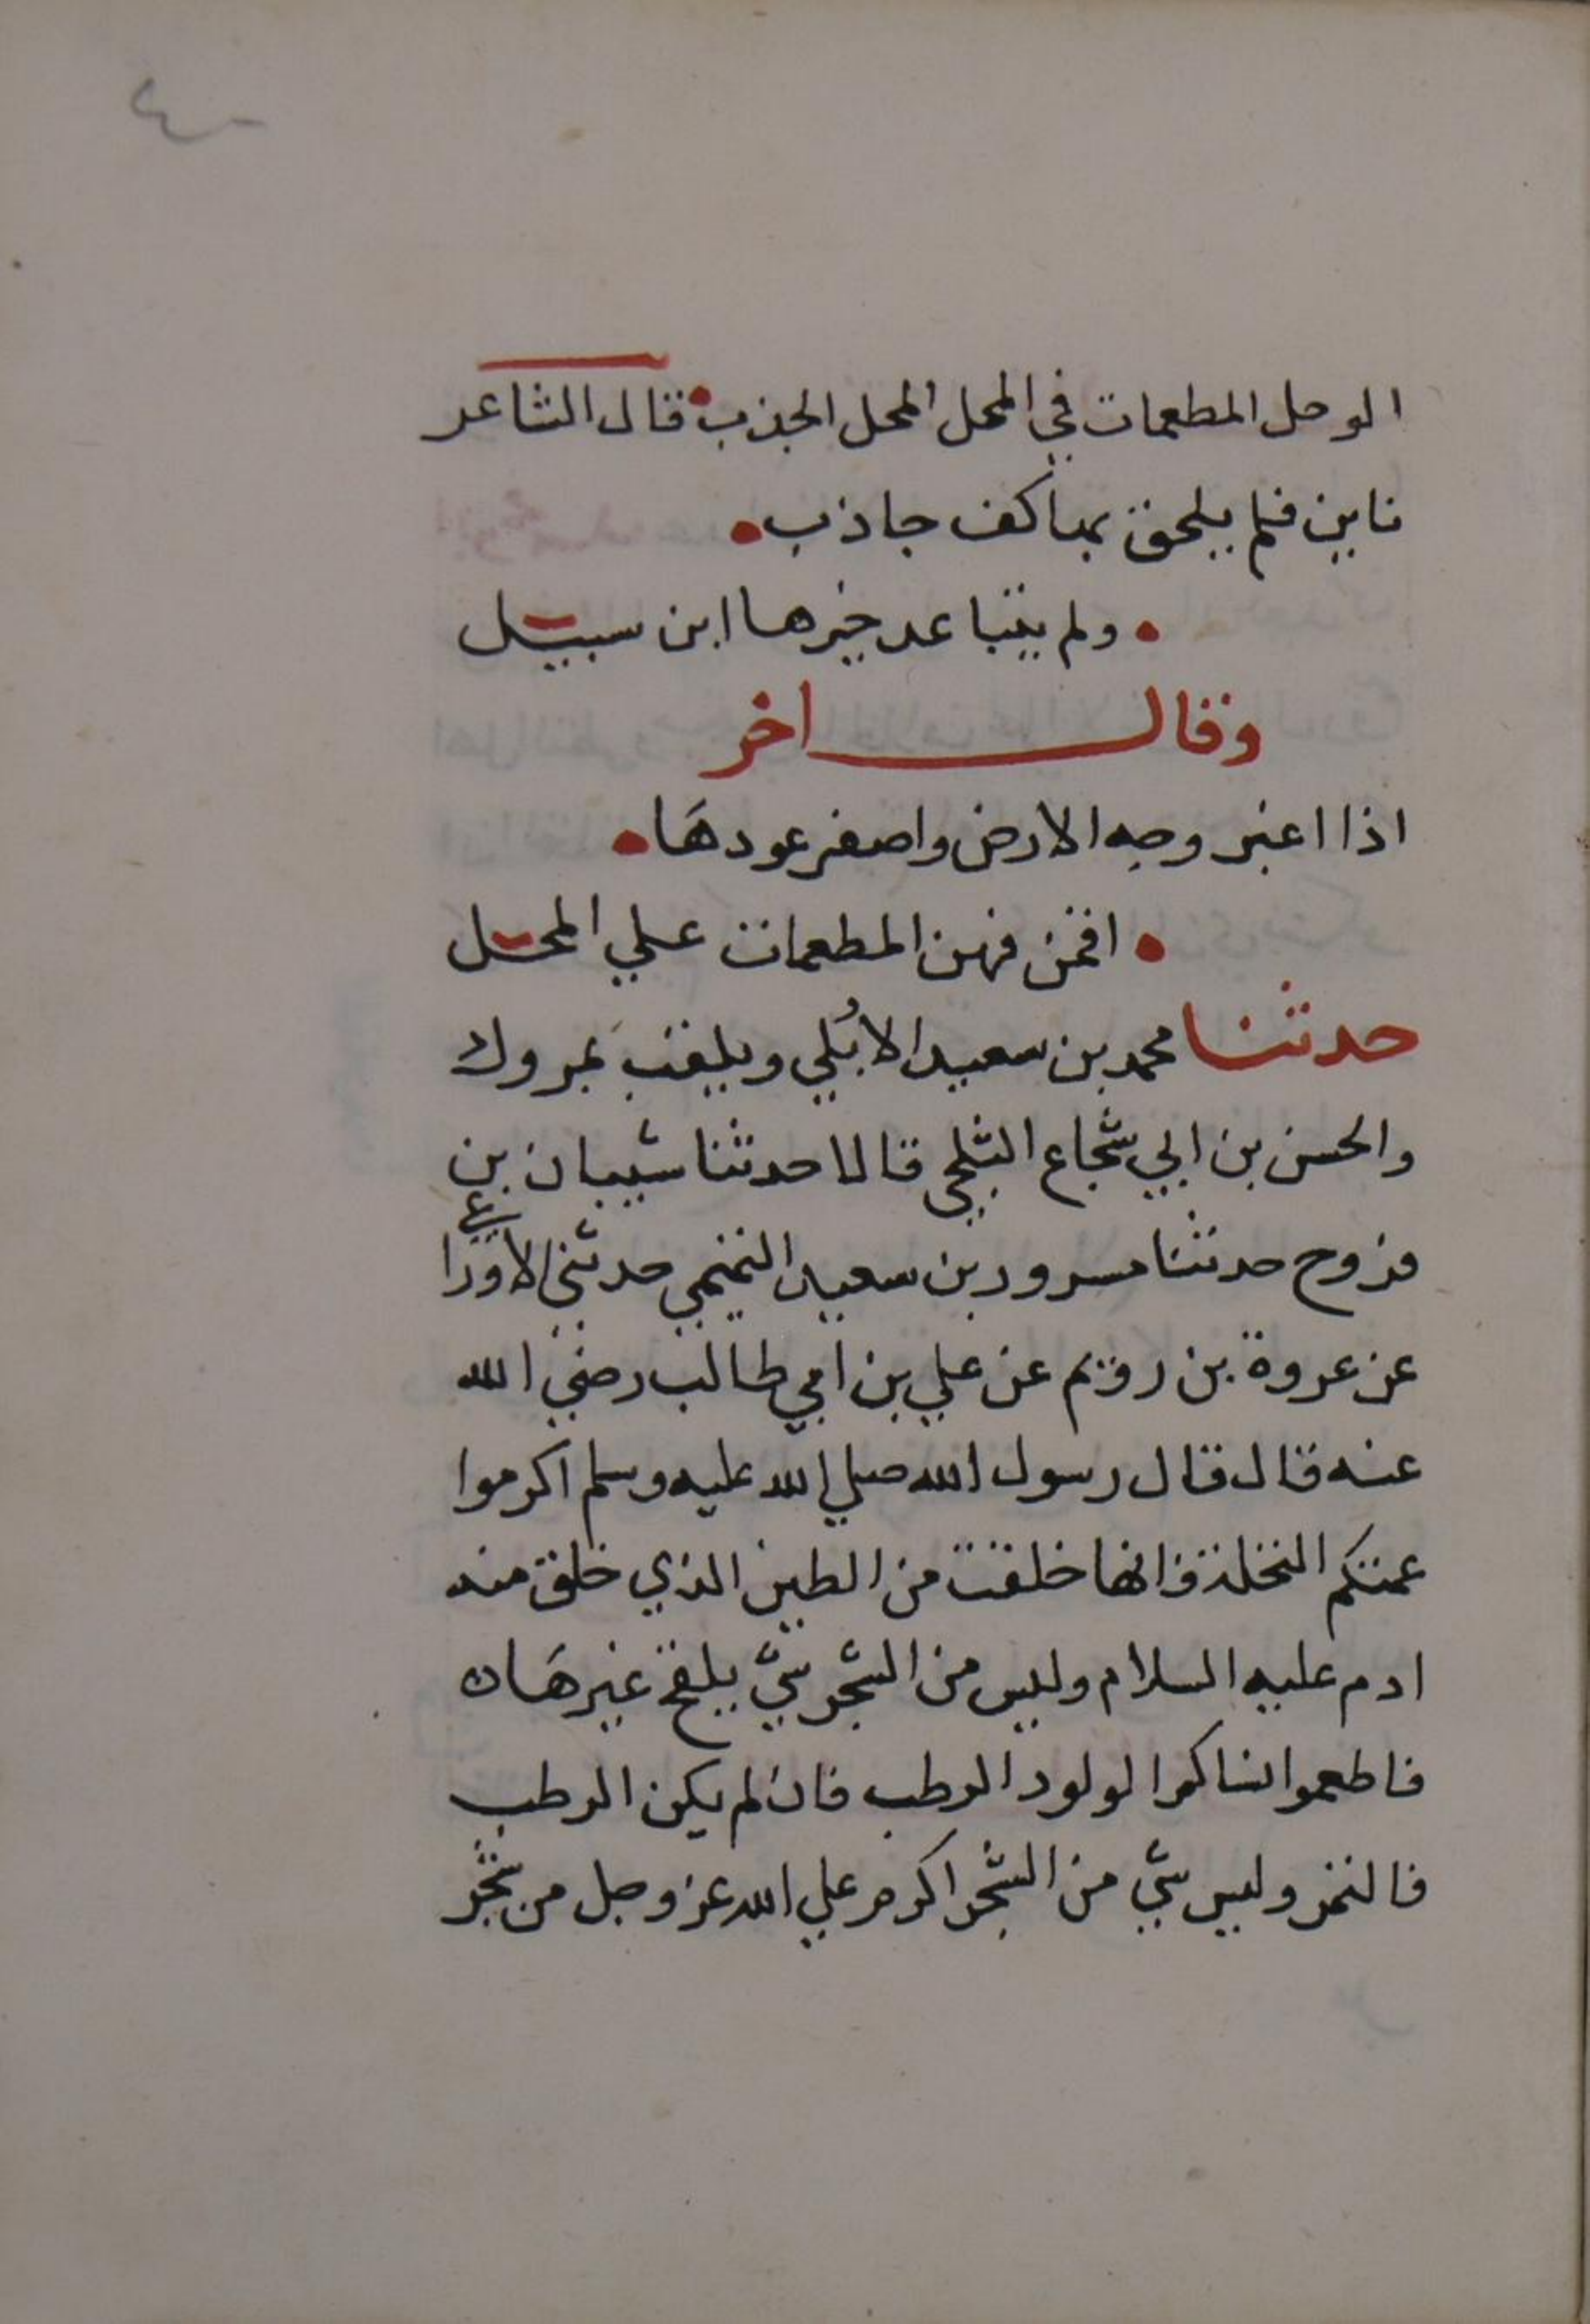 ٤٠
الوحل المطعمات في المحل المحل الجذب قال الشاعر
نابن فلم يلحق بها كف جاذب
ولم يتباعد خيرها ابن سبيل
وقال اخر
اذا اغبر وجه الارض واصفر عودها
اقمن فهن المطعمات علي المحل
حدثنا محمد بن سعيد الابُلي ويلقب بمروك
والحسن بن ابي شجاع البلخي قالا حدثنا شيبان بن
فروح حدثنا مسرور بن سعيد التميمي حدثني الاوزاعي
عن عروة بن رويم عن علي بن ابي طالب رضي الله
عنه قال قال رسول الله صلي الله عليه وسلم اكرموا
عمتكم النخلة فانها خلقت من الطين الذي خلق منه
ادم عليه السلام وليس من الشجر شي يلقح غيرها
فاطعموا نساكم الولود الرطب فان لم يكن الرطب
فالتمر وليس شي من الشجر اكرم علي الله عز وجل من شجر